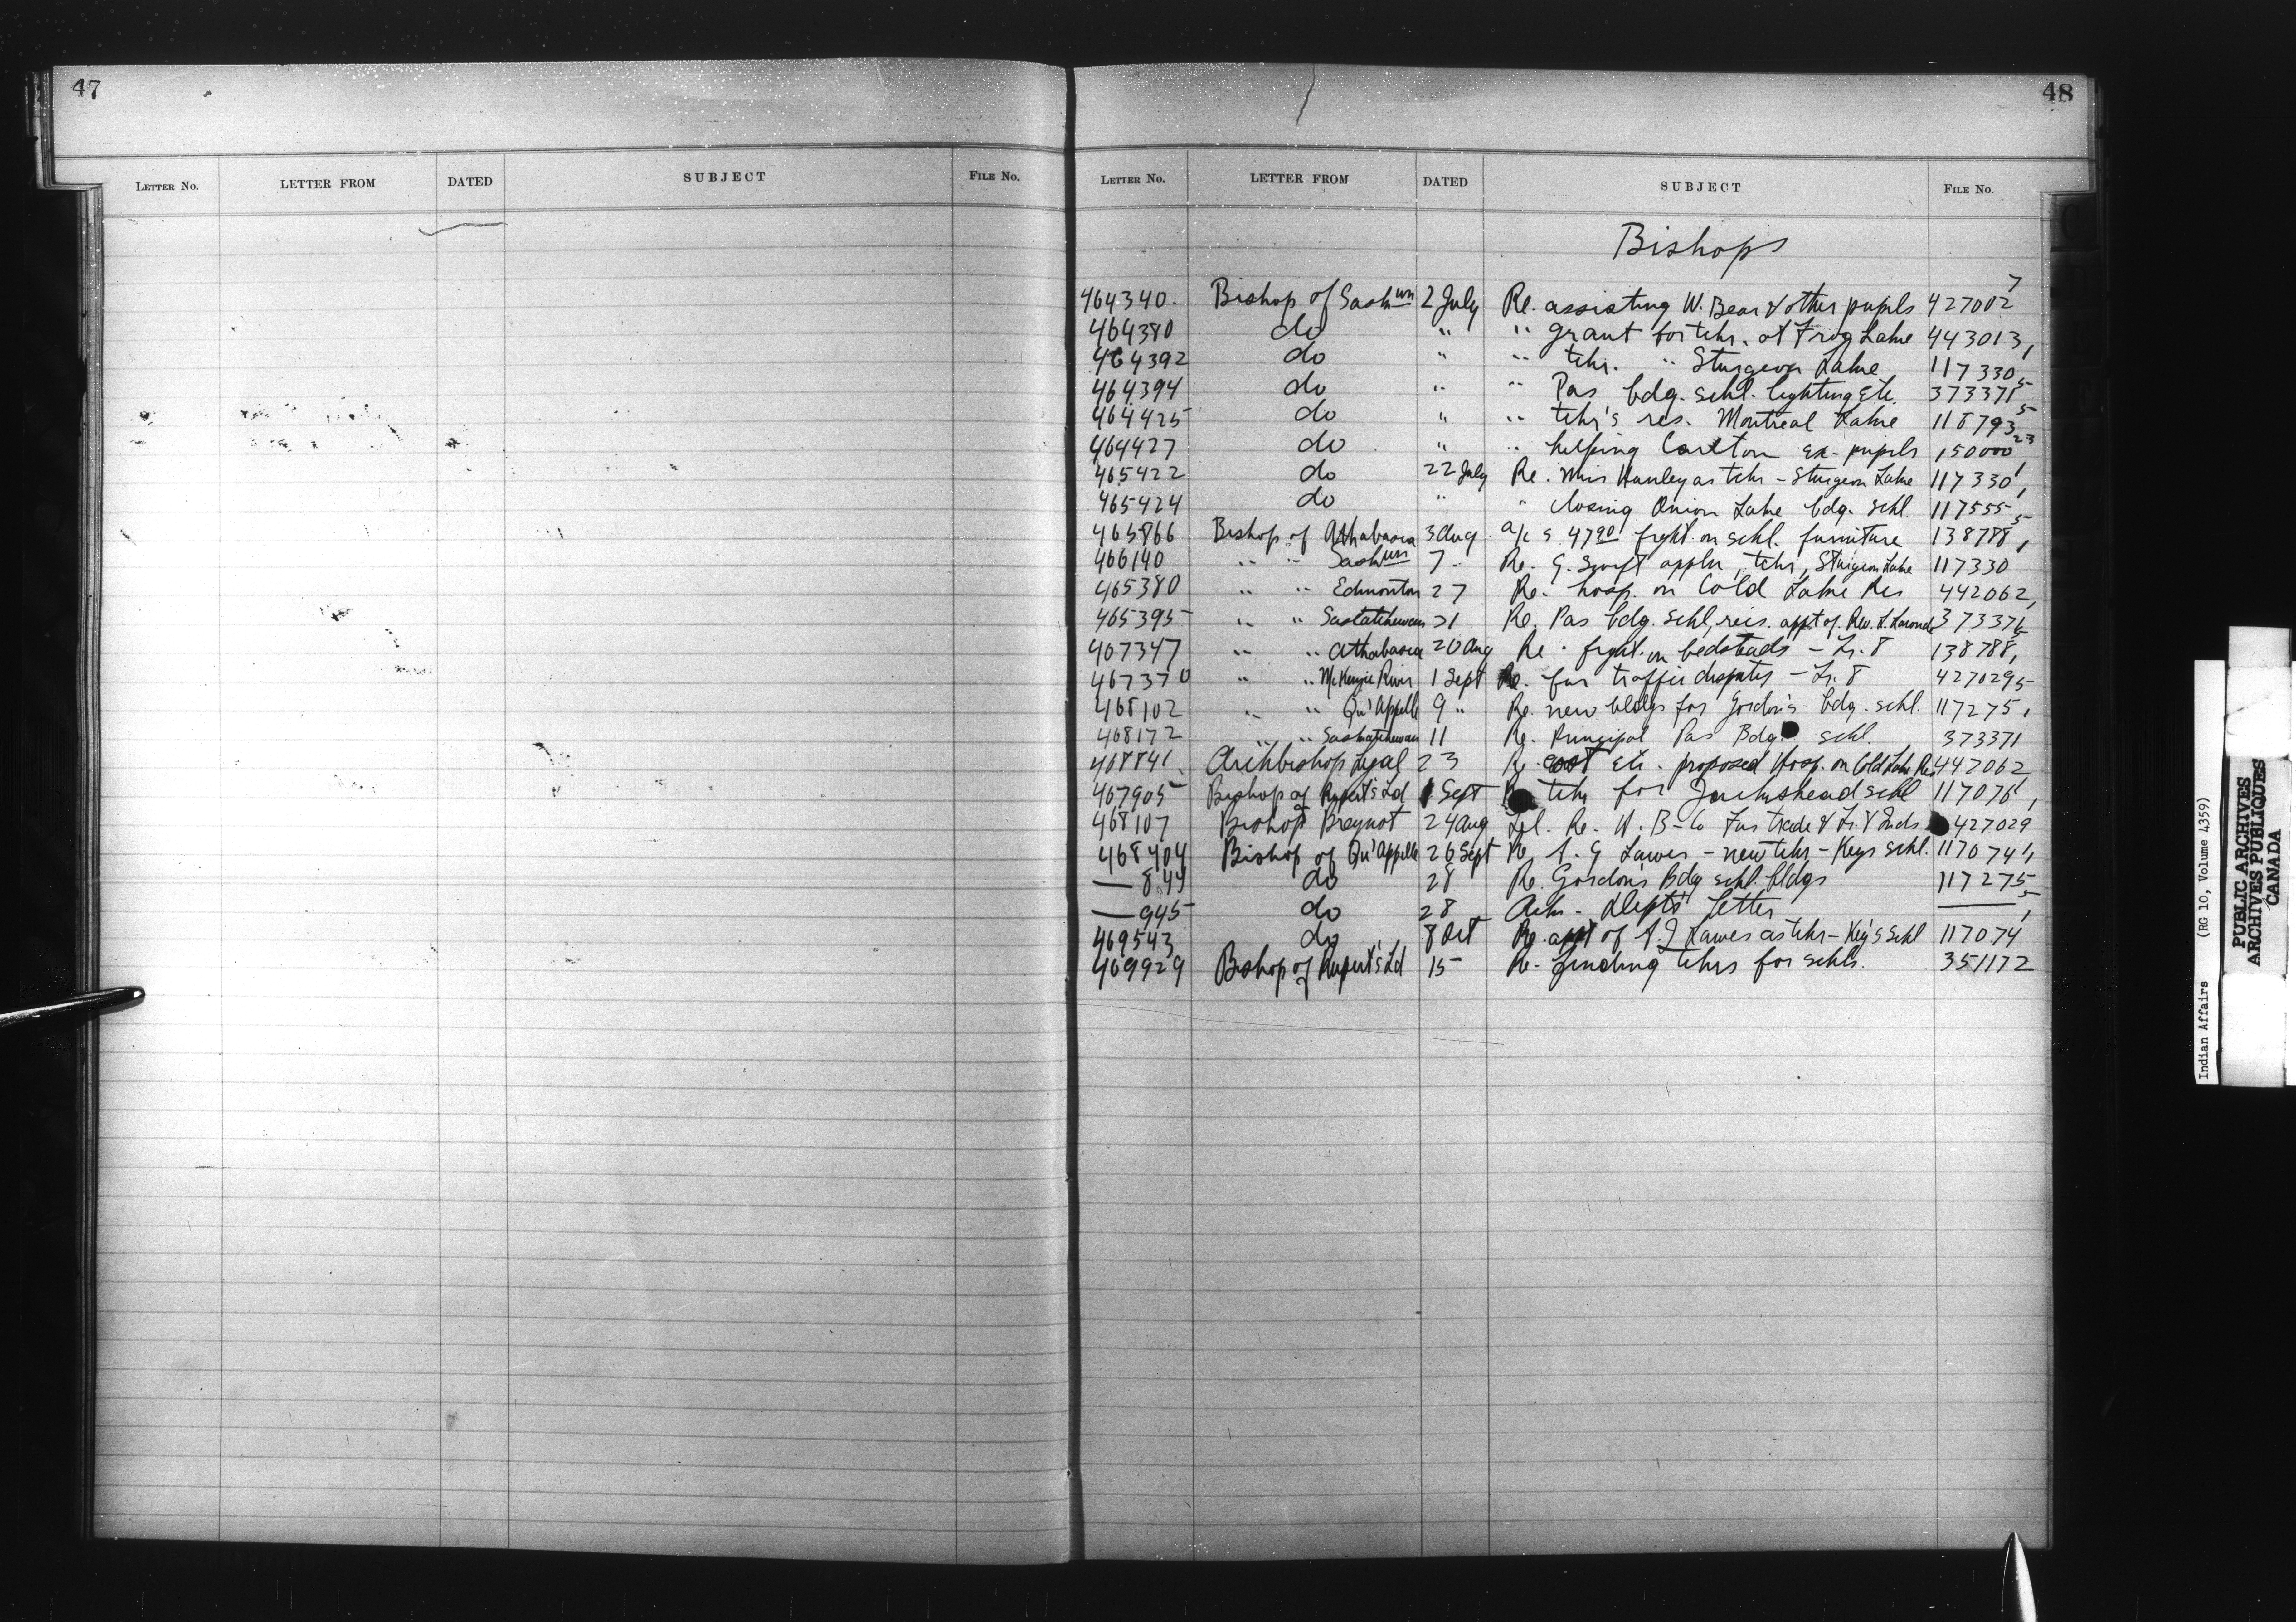 47
LETTER NO. LETTER FROM DATED SUBJECT FILE NO.
48
LETTER NO. LETTER FROM DATED SUBJECT FILE NO.
Bishops
464340 Bishop of Saskwn 2 July Re. assisting W. Bear & other pupils 427002 7
464380 do " " grant for tchr. at Frog Lake 443013,1
464392 do " " tchr. " Sturgeon Lake 117330,
464394 do " " Pas bdg. schl. lighting etc. 373371 5
464425 do " " tchr's res. Montreal Lake 118793 5
464427 do " " helping Carlton ex-pupils 150000 23
465422 do 22 July Re. Miss Hanley as tchr - Sturgeon Lake 117330,1
465424 do " " closing Onion Lake bdg. schl 117555,
465866 Bishop of Athabasca 3 Aug a/c $ 47 90 frght. on schl. furniture 138788 5
466140 " " Saskwn 7 " Re. G. Swift appln, tchr, Sturgeon Lake 117330 1
465380 " " Edmonton 27 Re. hosp. on Cold Lake Res 442062,
465395 " " Saskatchewan 31 Re. Pas bdg. schl, reis. appt of Rev. L. Laronde 373371,
467347 " " Athabasca 20 Aug Re. frght. on bedsteads - Tr. 8 138788, 5
467370 " " McKenzie River 1 Sept Re. fur traffic disputes - Tr. 8 427029
468102 " " Qu'Appelle 9 " Re. new bldgs for Gordon's bdg. schl. 117275, 5
468172 " " Saskatchewan 11 Re. Principal Pas Bdg. schl. 373371
468841 Archbishop Legal 23 Re cost etc. proposed Hosp. on Cold Lake Res 442062
467905 Bishop of Rupert's Ld 1 Sept tchr for Jackshead schl 117076,
468107 Bishop Breynat 24 Aug Tel. Re. H. B-Co Fur trade & Tr. 8 Inds. 427029
468404 Bishop of Qu'Appelle 26 Sept Re A. G Lawes - new tchr - Keys schl. 117074,1
— 844 do 28 Re. Gordon's Bdg schl. bldgs 117275
— 945 do 28 Ack - Dept's letter —— 5
469543 do 8 Oct Re. appt of A. J Lawes as tchr - Key's Schl 117074 1
469929 Bishop of Rupert's Ld 15 Re - finding tchrs for schls. 351172
Indian Affairs (RG 10, Volume 4359)
PUBLIC ARCHIVES
ARCHIVES PUBLIQUES
CANADA